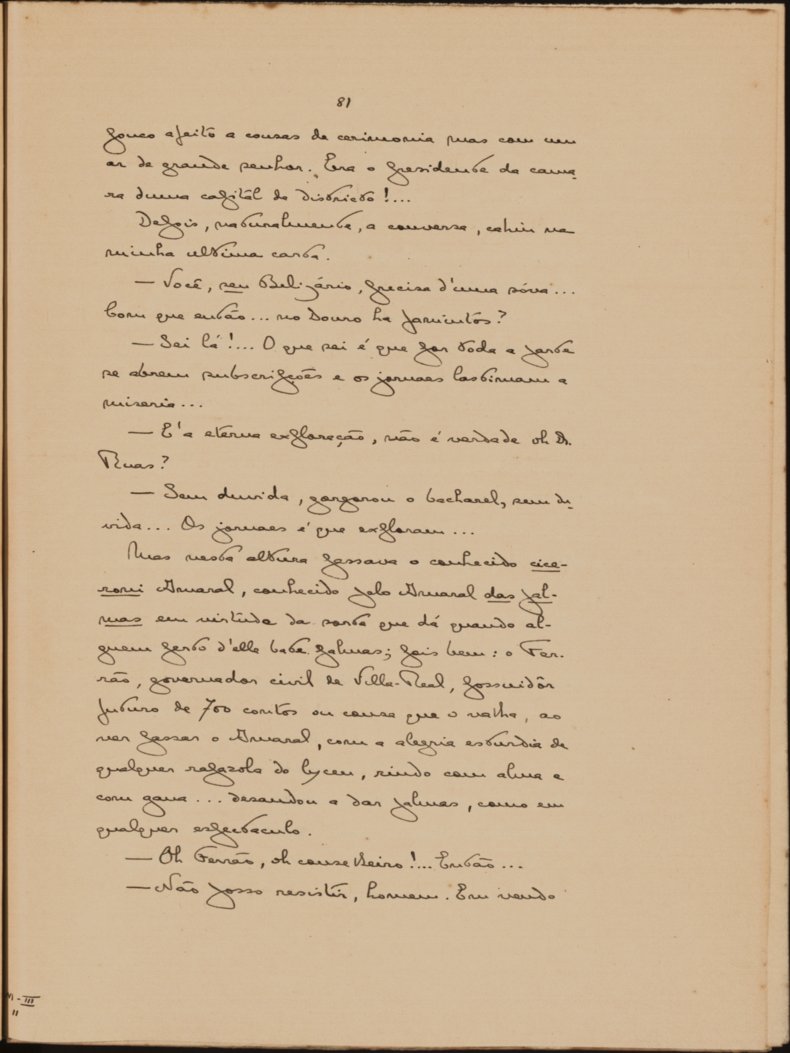 81
pouco afeito a cousas de cerimonia mas com um
ar de grande senhor. Era o presidente da cama-
ra duma capitál de districto!...
Depois, naturalmente, a conversa, cahiu na
minha ultima carta.
— Você, seu Belizário, precisa d'uma sóva...
bom que então... no Douro ha famintos?
— Sei lá!... O que sei é que por toda a parte
se abrem subscripções e os jornaes lastimam a
miseria...
— E' a eterna exploração, não é verdade oh Dr.
Ruas?
— Sem duvida, gorgorou o bacharel, sem du-
vida... Os jornaes é que exploram...
Mas nesta altura passava o conhecido cice-
roni Amaral, conhecido pelo Amaral das pal-
mas em virtude da sorte que dá quando al-
guem perto d'elle bate palmas; pois bem: o Fer-
rão, governador civil de Villa-Real, possuidôr
futuro de 700 contos ou cousa que o valha, ao
ver passar o Amaral, com a alegria esturdia de
qualquer rapazola do lyceu, rindo com alma e
com gana... desandou a dar palmas, como em
qualquer espectaculo.
— Oh Ferrão, oh conselheiro!... Então...
— Não posso resistir, homem. Em vendo
M-III
11